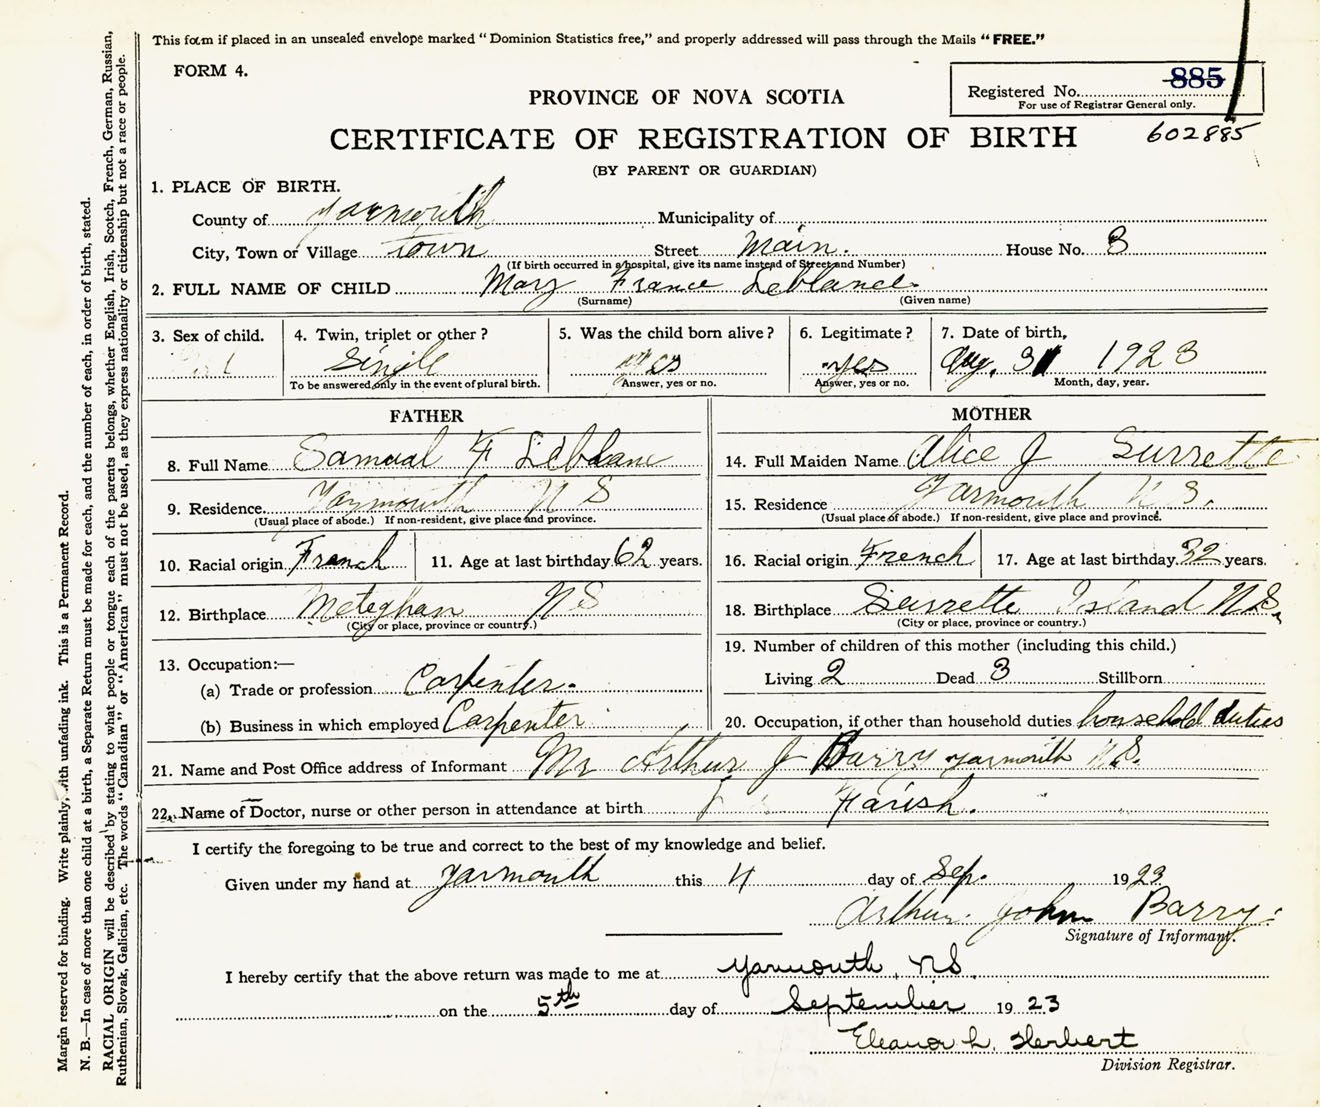 This form if placed in an unsealed envelope marked "Dominion Statistics free," and properly addressed will pass through the Mails "FREE."
FORM 4.
Registered No. 885
For use of Registrar General only.
602885
PROVINCE OF NOVA SCOTIA
CERTIFICATE OF REGISTRATION OF BIRTH
(BY PARENT OR GUARDIAN)
1. PLACE OF BIRTH.
County of Yarmouth Municipality of
City, Town or Village Town Street Main. House No. 3
(If birth occurred in a hospital, give its name instead of Street and Number)
2. FULL NAME OF CHILD Mary France Leblance
(Surname) (Given name)
3. Sex of child. 4. Twin, triplet or other? 5. Was the child born alive? 6. Legitimate? 7. Date of birth,
Single yes yes Aug. 31 1923
To be answered only in the event of plural birth. Answer, yes or no. Answer, yes or no. Month, day, year.
FATHER MOTHER
8. Full Name Samual F Leblanc 14. Full Maiden Name Alice J Surrette
9. Residence. Yarmouth N S 15. Residence Yarmouth N.S.
(Usual place of abode.) If non-resident, give place and province. (Usual place of abode.) If non-resident, give place and province.
10. Racial origin French 11. Age at last birthday 62 years. 16. Racial origin French 17. Age at last birthday 32 years.
12. Birthplace Meteghan N S 18. Birthplace Surrette Island N.S.
(City or place, province or country.) (City or place, province or country.)
13. Occupation:— 19. Number of children of this mother (including this child.)
(a) Trade or profession Carpenter. Living 2 Dead 3 Stillborn
(b) Business in which employed Carpenter 20. Occupation, if other than household duties household duties
21. Name and Post Office address of Informant Mr Arthur J Barry Yarmouth N.S.
22. Name of Doctor, nurse or other person in attendance at birth Farish.
I certify the foregoing to be true and correct to the best of my knowledge and belief.
Given under my hand at Yarmouth this 4 day of Sep. 1923
Arthur John Barry
Signature of Informant.
I hereby certify that the above return was made to me at Yarmouth, N.S.
on the 5th day of September 1923
Eleanor L. Herbert
Division Registrar.
Margin reserved for binding. Write plainly, with unfading ink. This is a Permanent Record.
N. B.—In case of more than one child at a birth, a Separate Return must be made for each, and the number of each, in order of birth, stated.
RACIAL ORIGIN will be described by stating to what people or tongue each of the parents belongs, whether English, Irish, Scotch, French, German, Russian,
Ruthenian, Slovak, Galician, etc. The words "Canadian" or "American" must not be used, as they express nationality or citizenship but not a race or people.